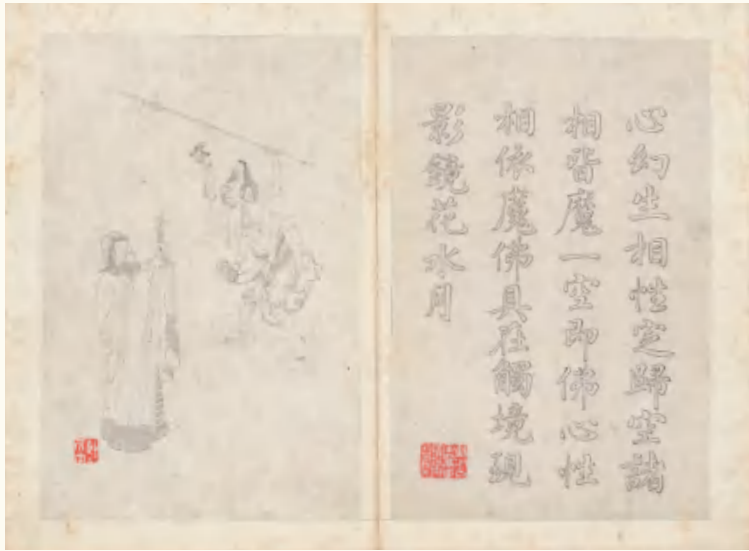 心幻生相性定歸空諸
相皆魔一空即佛心性
相依魔佛具在觸境現
影鏡花水月